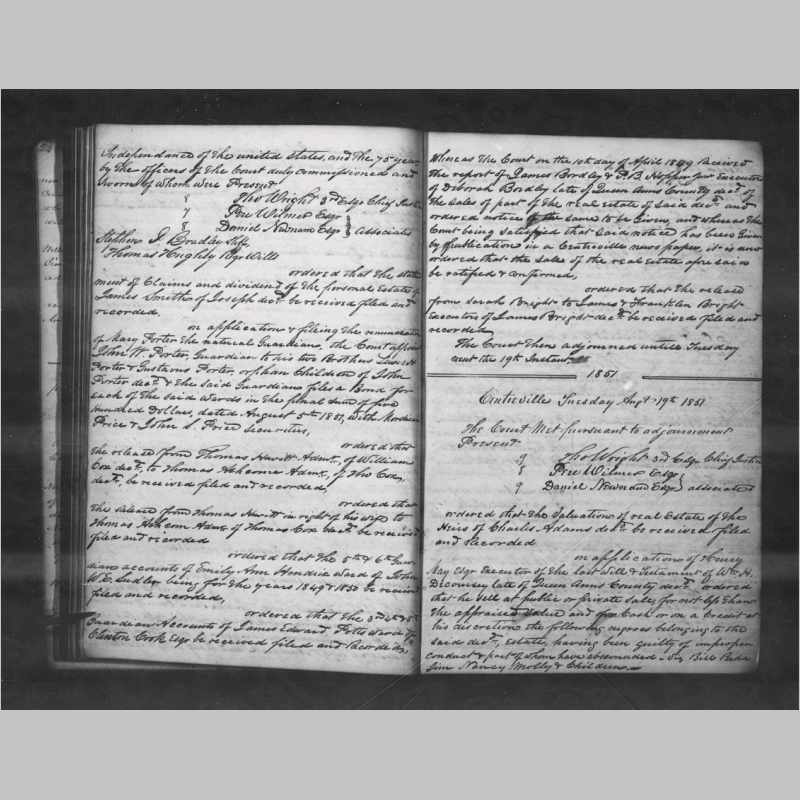 Independance of the united States, and the 75th year,
by the officers of the Court duly commissioned and
sworn of whom were Present
8 Tho Wright 3rd Esqr Chief Justice
7 Pere Wilmer Esqr
8 Daniel Newnam Esqr } associates
Stephen J. Bradley shff.
Thomas Hughly Regr Wills
ordered that the state
ment of Claims and dividend of the personal Estate of
James Smith of Joseph decd be received filed and
recorded.
on application & filing the
of Mary Porter the natural Guardian, the Court appoint
John W. Porter, Guardian to his two Brothers
Porter & Gustavus Porter, orphan Children of John
Porter decd & the said Guardian files a Bond for
each of the said wards in the penal sum of five
hundred Dollars, dated August 5th 1851, with
Price & John S. Price Securities,
ordered that
the release from Thomas Hewitt Admr, of William
Cox decd, to Thomas Ashcom Admr, of Tho Cox,
decd, be received filed and recorded,
ordered that
the release from Thomas Hewitt in right of his wife to
Thomas Ashcom Admr of Thomas Cox decd be received
filed and recorded
ordered that the 5th & 6th Guar
dian accounts of Emily Ann Hendrix ward of John
W. E. Sudler being for the years 1849 & 1850 be received
filed and recorded,
ordered that the 3rd 4th & 5th
Guardian Accounts of James Edward Potts ward of
Clinton Cook Esqr be received filed and recorded,
Whereas the Court on the 10th day of April 1849 Received
the report of James Bordley & P. B. Hopper Executors
of Deborah Bordley late of Queen Anns County decd of
the sales of part of the real estate of said decd and
ordered notice of the same to be given, and whereas the
Court being satisfied that said notice has been Given
by publication in a Centreville news paper, it is now
ordered that the sales of the real estate afore said
be ratified & confirmed,
ordered that the release
from Sarah Bright to James & Franklin Bright
Executors of James Bright decd be received filed and
recorded
The Court then adjourned until Tuesday
next the 19th Instant
1851
Centreville Tuesday Augt 19th 1851
The Court Met pursuant to adjournment
Present
9 Tho Wright 3rd Esqr Chief Justice
8 Pere Wilmer Esqr
9 Daniel Newnam Esqr } associates
ordered that the Valuation of real Estate of the
Heirs of Charles Adams decd be received filed
and recorded
on application of Henry
May Esqr Executor of the last will & testament of Wm H.
Decoursey late of Queen Anns County decd ordered
that he sell at public or private sale, for not less than
the appraised value and for Cash or on a Credit at
his discretion the following negroes belonging to the
said decd, Estate, having been guilty of improper
conduct & part of whom have absconded Viz Bill
Jim Nancy Molly & Children